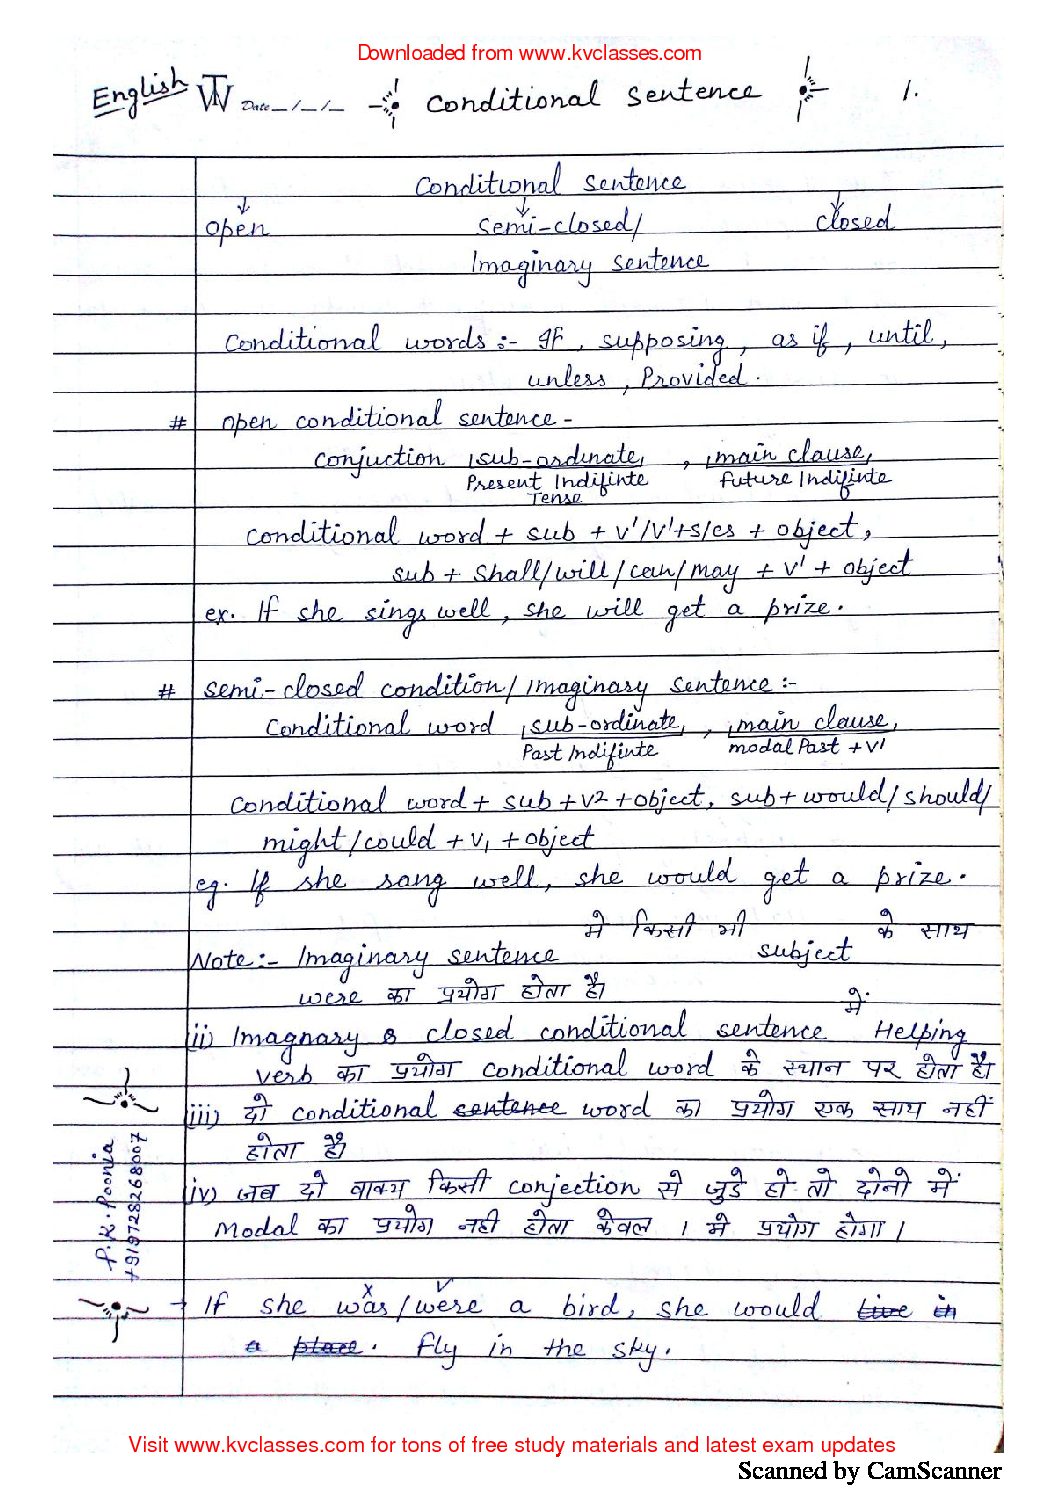 Downloaded from www.kvclasses.com
English TW Date _/_/_ Conditional Sentence 1.
Conditional Sentence
open Semi-closed/ closed
Imaginary Sentence
Conditional words :- If, supposing, as if, until,
unless, Provided.
# open conditional sentence -
Conjuction sub-ordinate, , main clause,
Present Indifinte Future Indifinte
Tense
Conditional word + sub + V'/V'+s/es + object,
sub + Shall/will/can/may + V' + object
ex. If she sings well, she will get a prize.
# Semi-closed condition/Imaginary Sentence :-
Conditional word sub-ordinate, , main clause,
Past Indifinte modal Past + V'
Conditional word + sub + V2 + object, sub + would/should/
might/could + V1 + object
eg. If she sang well, she would get a prize.
Note :- Imaginary sentence में किसी भी subject के साथ
were का प्रयोग होता है।
(ii) Imagnary & closed conditional sentence में Helping
verb का प्रयोग conditional word के स्थान पर होता है।
(iii) दो conditional sentence word का प्रयोग एक साथ नहीं
होता है।
(iv) जब दो वाक्य किसी conjection से जुडे हो तो दोनो में
Modal का प्रयोग नही होता केवल 1 मे प्रयोग होगा।
P.K. Poonia
+919728268007
→ If she was/were a bird, she would live in
x ✓
a place. fly in the sky.
Visit www.kvclasses.com for tons of free study materials and latest exam updates
Scanned by CamScanner